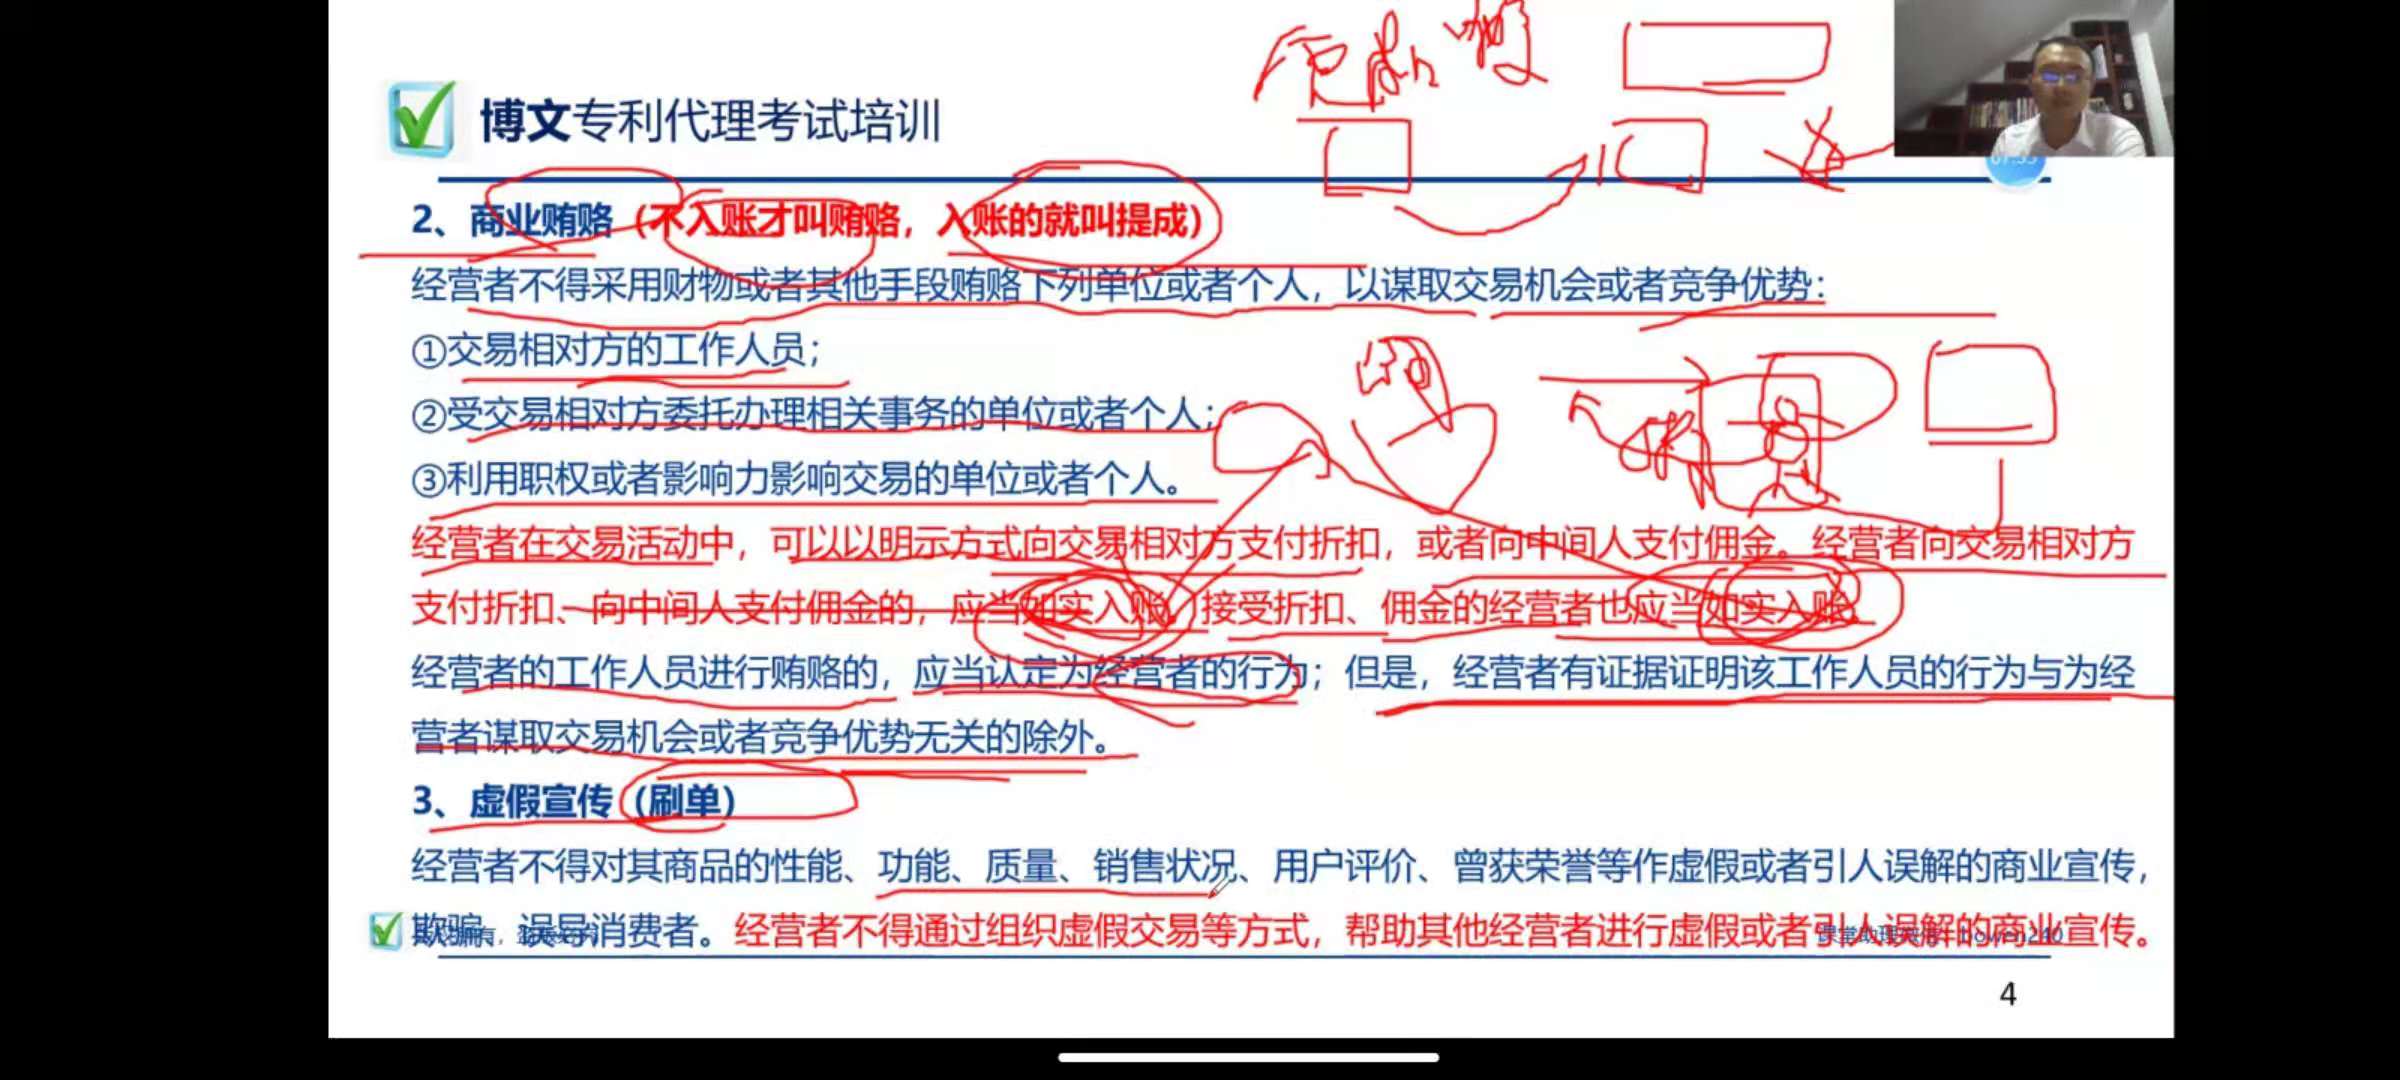 博文专利代理考试培训
2、商业贿赂（不入账才叫贿赂，入账的就叫提成）
经营者不得采用财物或者其他手段贿赂下列单位或者个人，以谋取交易机会或者竞争优势：
①交易相对方的工作人员；
②受交易相对方委托办理相关事务的单位或者个人；
③利用职权或者影响力影响交易的单位或者个人。
经营者在交易活动中，可以以明示方式向交易相对方支付折扣，或者向中间人支付佣金。经营者向交易相对方
支付折扣、向中间人支付佣金的，应当如实入账。接受折扣、佣金的经营者也应当如实入账。
经营者的工作人员进行贿赂的，应当认定为经营者的行为；但是，经营者有证据证明该工作人员的行为与为经
营者谋取交易机会或者竞争优势无关的除外。
3、虚假宣传（刷单）
经营者不得对其商品的性能、功能、质量、销售状况、用户评价、曾获荣誉等作虚假或者引人误解的商业宣传，
欺骗、误导消费者。经营者不得通过组织虚假交易等方式，帮助其他经营者进行虚假或者引人误解的商业宣传。
4